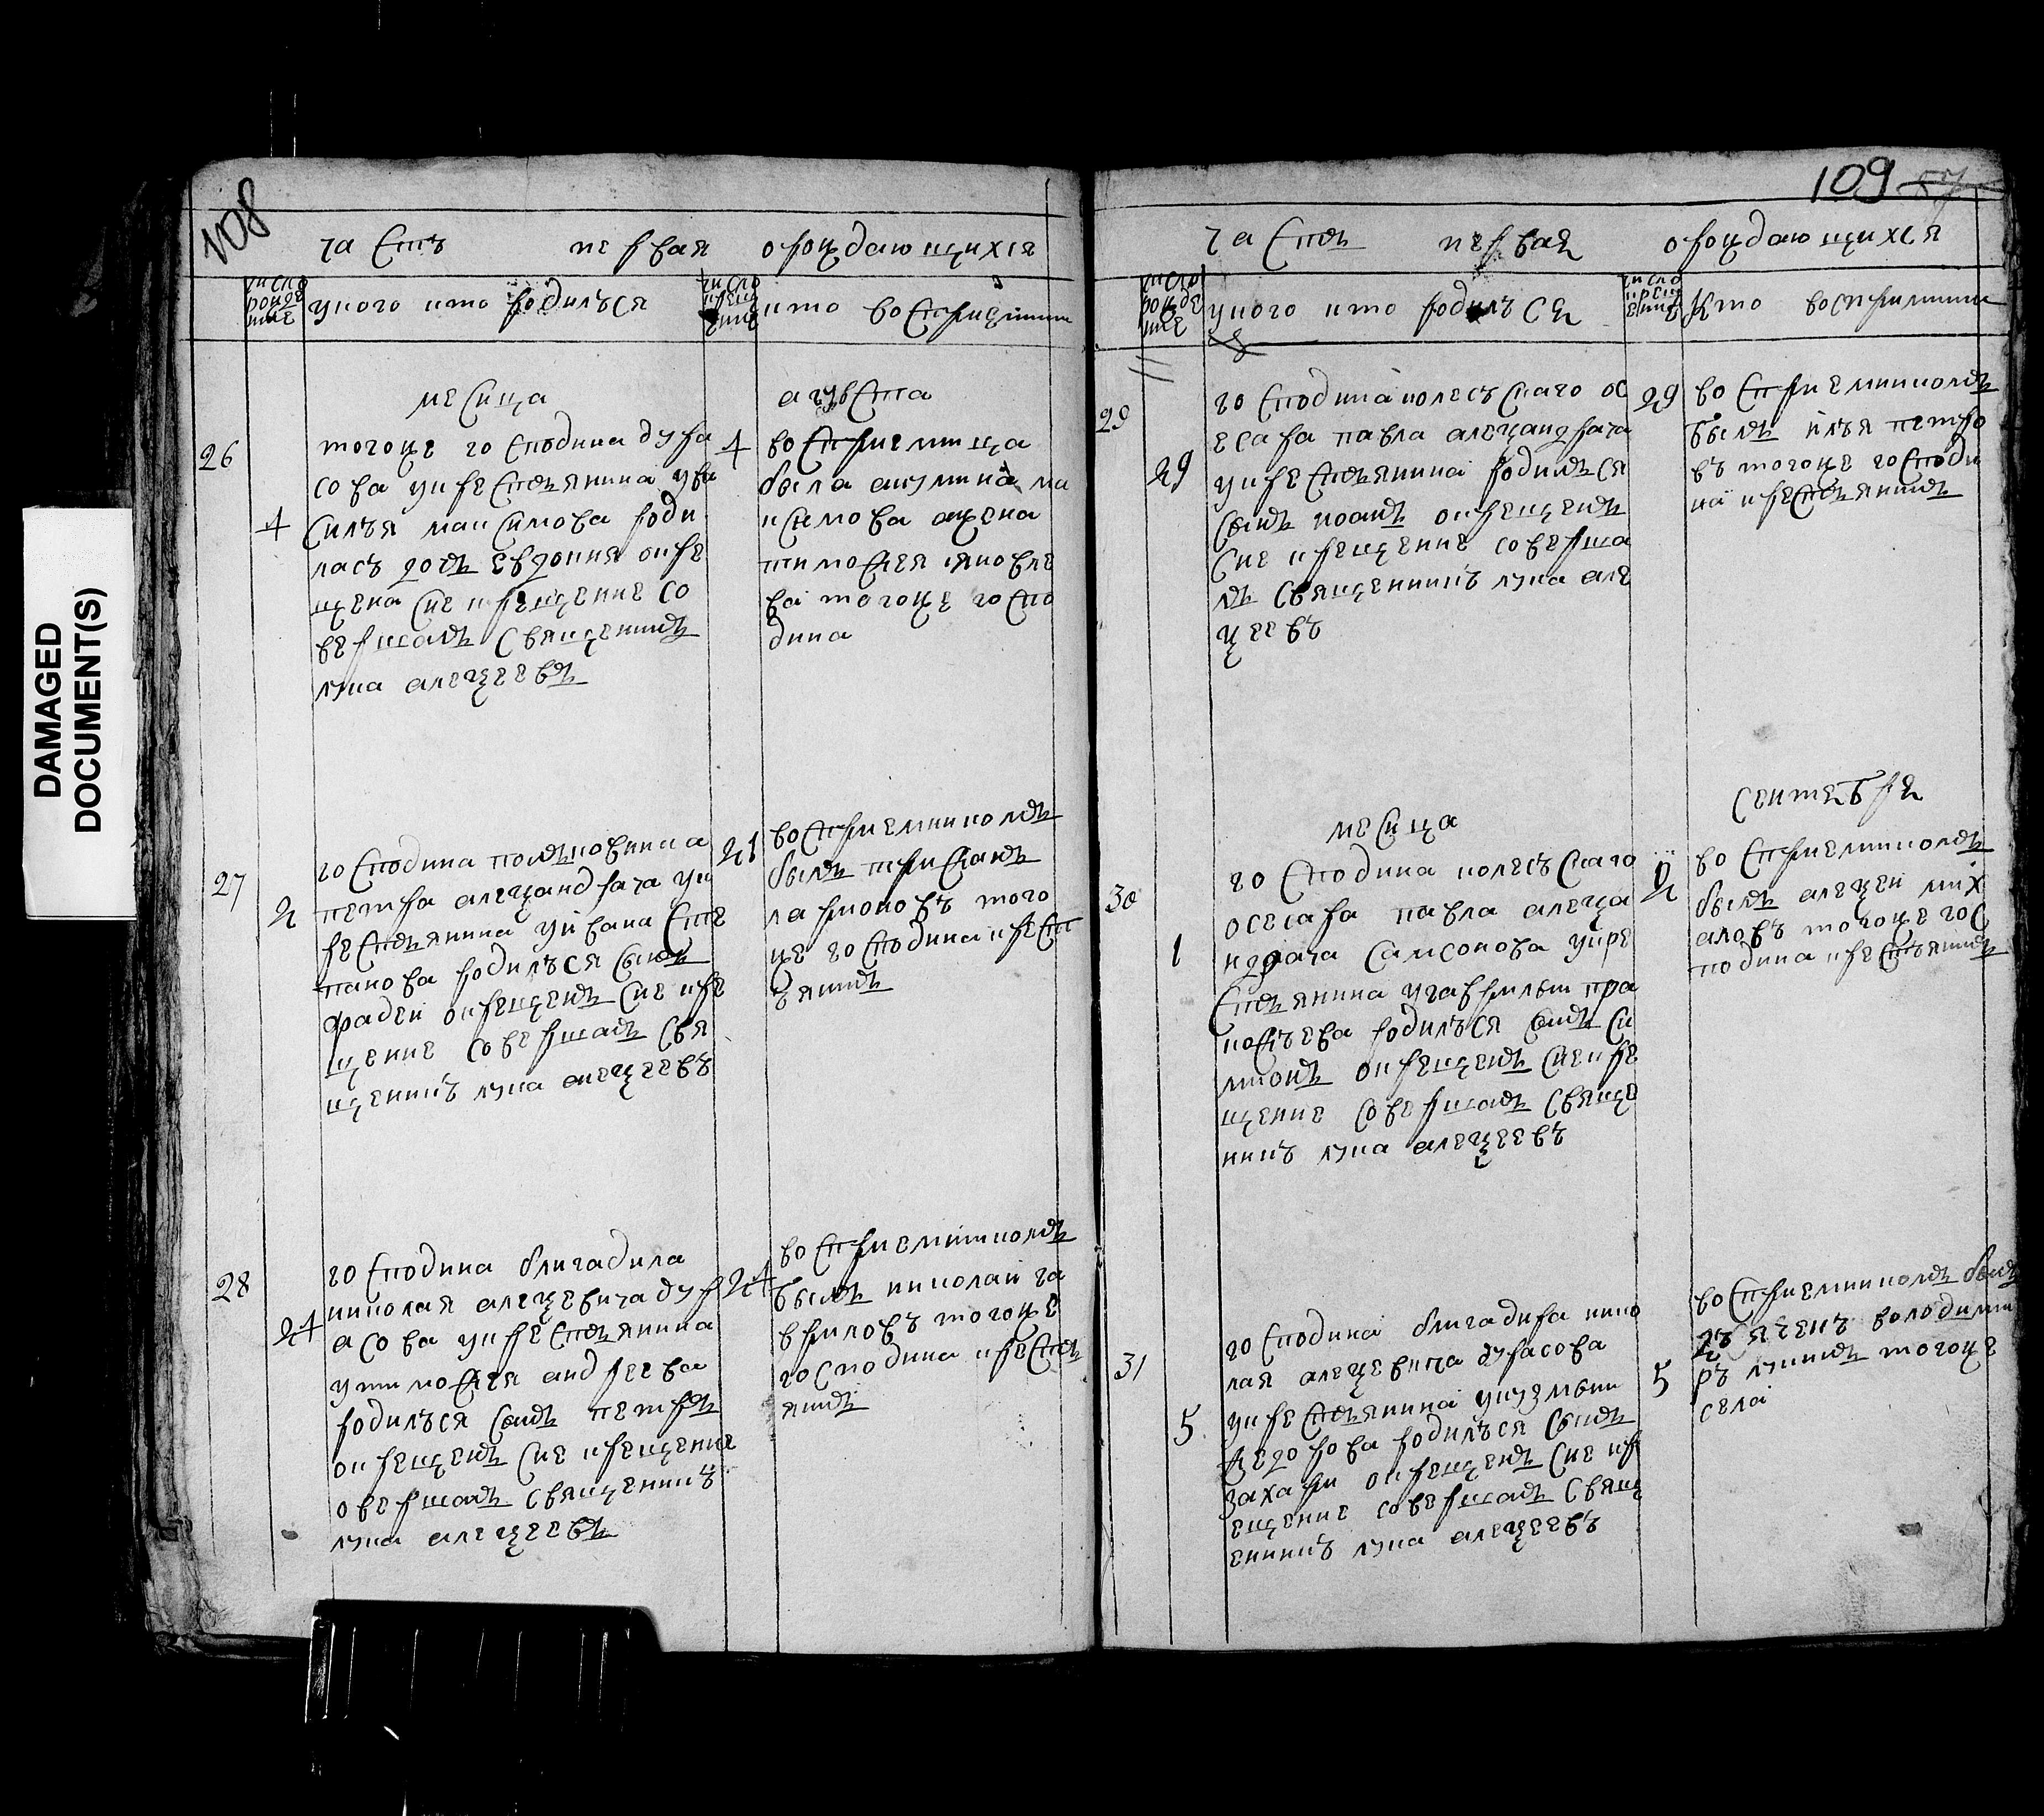 DAMAGED
DOCUMENT(S)
108
часть первая о рождающихся
число рожде ние
у кого кто родилъся
число крещ ение
кто восприемни
месица августа
26
4
тогоже господина дура
сова у крестьянина ува
силья максимова роди
лась дочь евдокия окре
щена сие крещение со
вершалъ священникъ
лука алеѯеевъ
4
восприемница
была акулина ма
ксимова жена
тимофея яковле
ва тогоже госпо
дина
27
2
господина полчковника
петра алеѯандрача у к
рестьянина у ивана сте
панова родилъся сынъ
фадеи окрещенъ сие кре
щение совершалъ свя
щенникъ лука алеѯеевъ
21
восприемникомъ
былъ
ла того
же господина крест
ьянинъ
28
24
господина бригадила
николая алеѯевича дур
асова у крестьянина
у тимофея андреева
родилъся сынъ петръ
окрещенъ сие крещение
овершалъ священникъ
лука алеѯеевъ
24
восприемникомъ
былъ николай га
вриловъ тогоже
господина крестья
янинъ
109
57
часть первая о рождающихся
число рожде ние
у кого кто родилъся
число крещ ение
кто восприемни
29
29
господина колесъскаго ос
есара павла алеѯандрача
у крестьянина родился
сынъ иоанъ окрещенъ
сие крещение соверша
лъ священникъ лука але
ѯеевъ
29
восприемникомъ
былъ илья петро
въ тогоже господи
на крестьянинъ
месица сентебре
30
1
господина колесъскаго
осесара павла алеѯа
ндрача самсонова у кре
стьянина у гаврилы пра
кофьева родилъся сынъ си
мионъ окрещенъ сие кре
щение совершалъ священ
никъ лука алеѯеевъ
2
восприемникомъ
былъ алеѯеи мих
аловъ тогоже гос
подина крестьянинъ
31
5
господина бригадира нико
лая алеѯевича дурасова
у крестьянина у кузмы
федорова родилъся сынъ
захари окрещенъ сие кр
ещение совершалъ свящ
енникъ лука алеѯеевъ
5
восприемникомъ былъ
дъячекъ володими
ръ тогоже
села